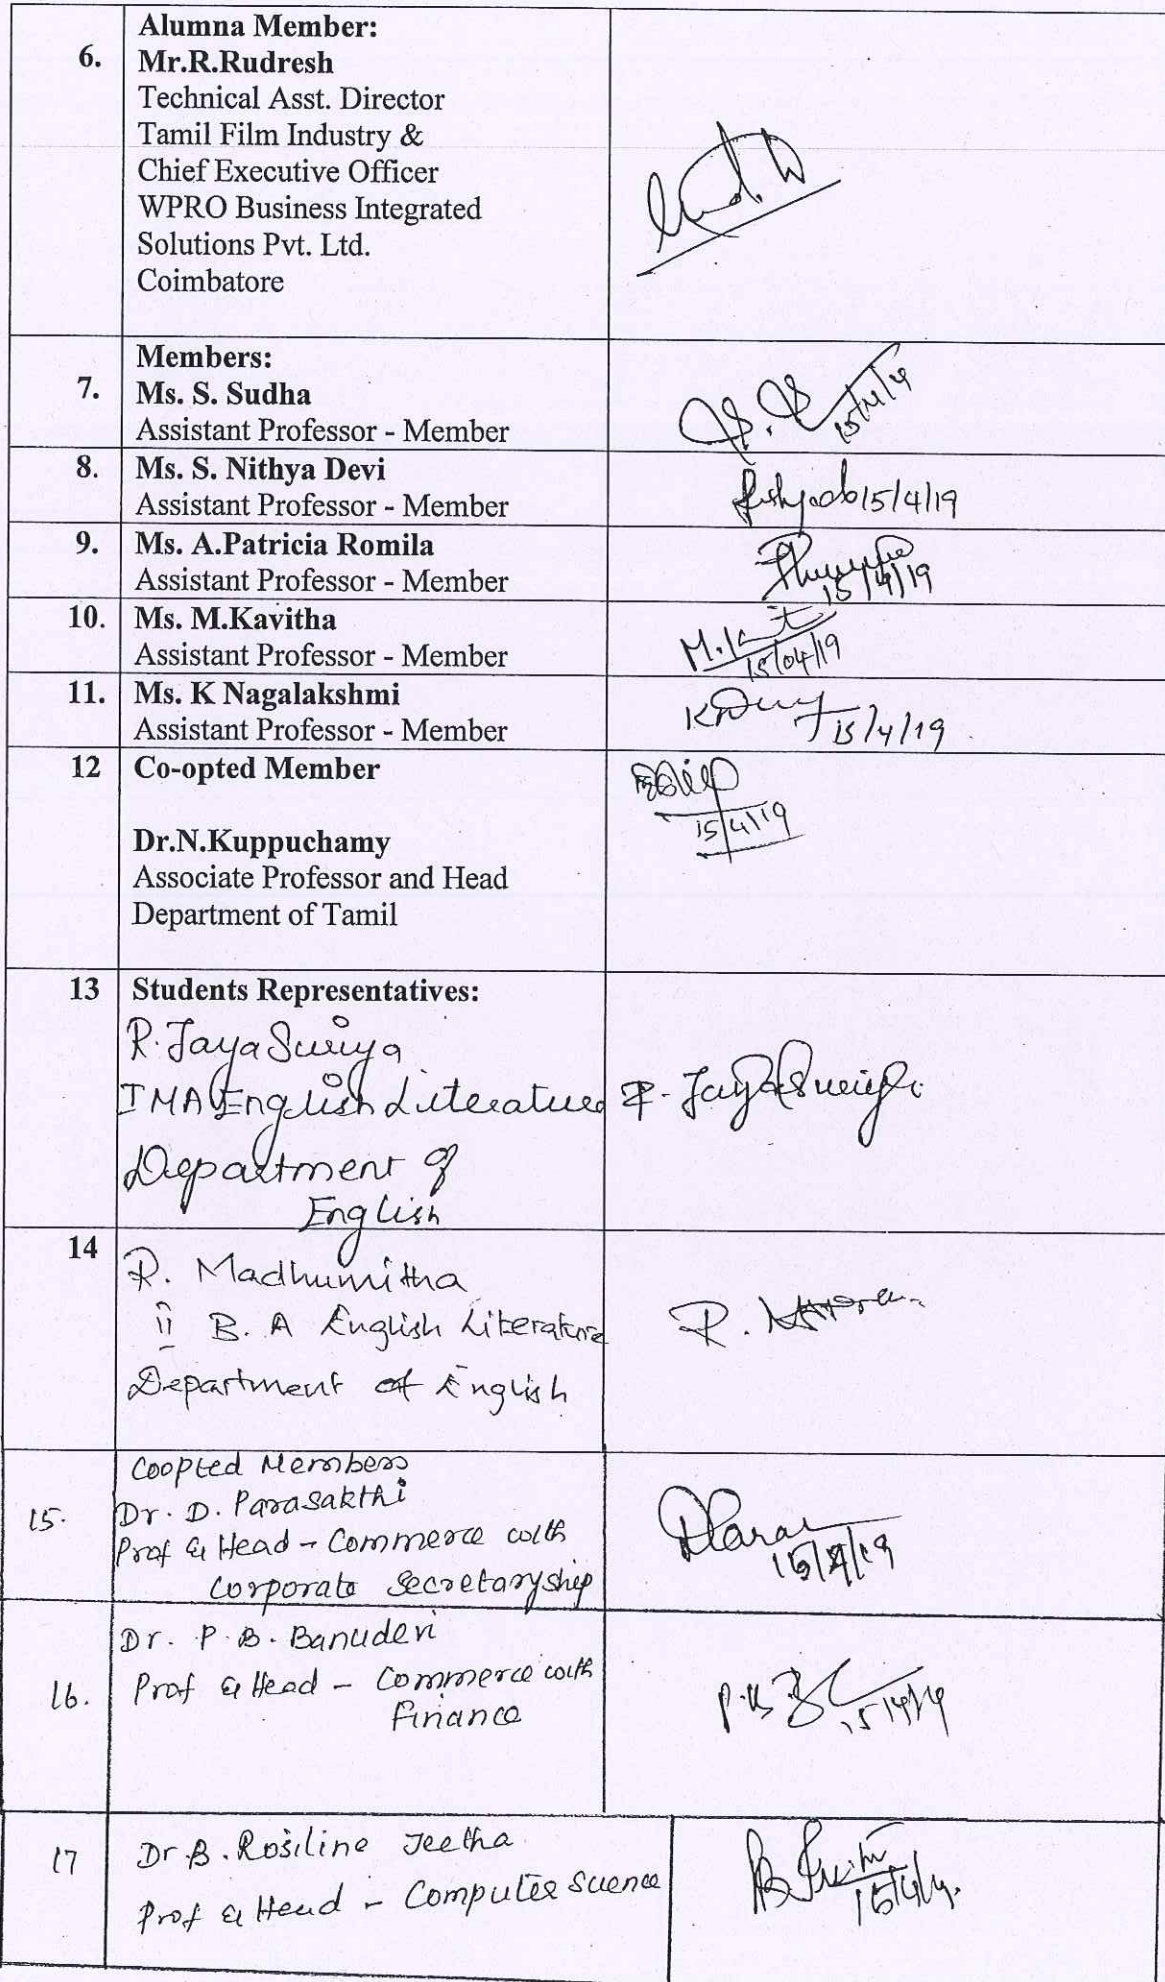 Alumna Member:
6. Mr.R.Rudresh
Technical Asst. Director
Tamil Film Industry &
Chief Executive Officer
WPRO Business Integrated
Solutions Pvt. Ltd.
Coimbatore
Members:
7. Ms. S. Sudha
Assistant Professor - Member
15/4/19
8. Ms. S. Nithya Devi
Assistant Professor - Member
15/4/19
9. Ms. A.Patricia Romila
Assistant Professor - Member
15/4/19
10. Ms. M.Kavitha
Assistant Professor - Member
15/04/19
11. Ms. K Nagalakshmi
Assistant Professor - Member
15/4/19
12 Co-opted Member
15/4/19
Dr.N.Kuppuchamy
Associate Professor and Head
Department of Tamil
13 Students Representatives:
R. Jaya Suriya
I MA English Literature R. JayaSuriya
Department of
English
14
R. Madhumitha
ii B. A English Literature R.
Department of English
Coopted Members
15. Dr. D. Parasakthi
Prof & Head - Commerce with
Corporate Secretaryship
15/4/19
Dr. P. B. Banudevi
16. Prof & Head - Commerce with
Finance
15/4/19
17 Dr. B. Rosiline Jeetha
Prof & Head - Computer Science
15/4/19.